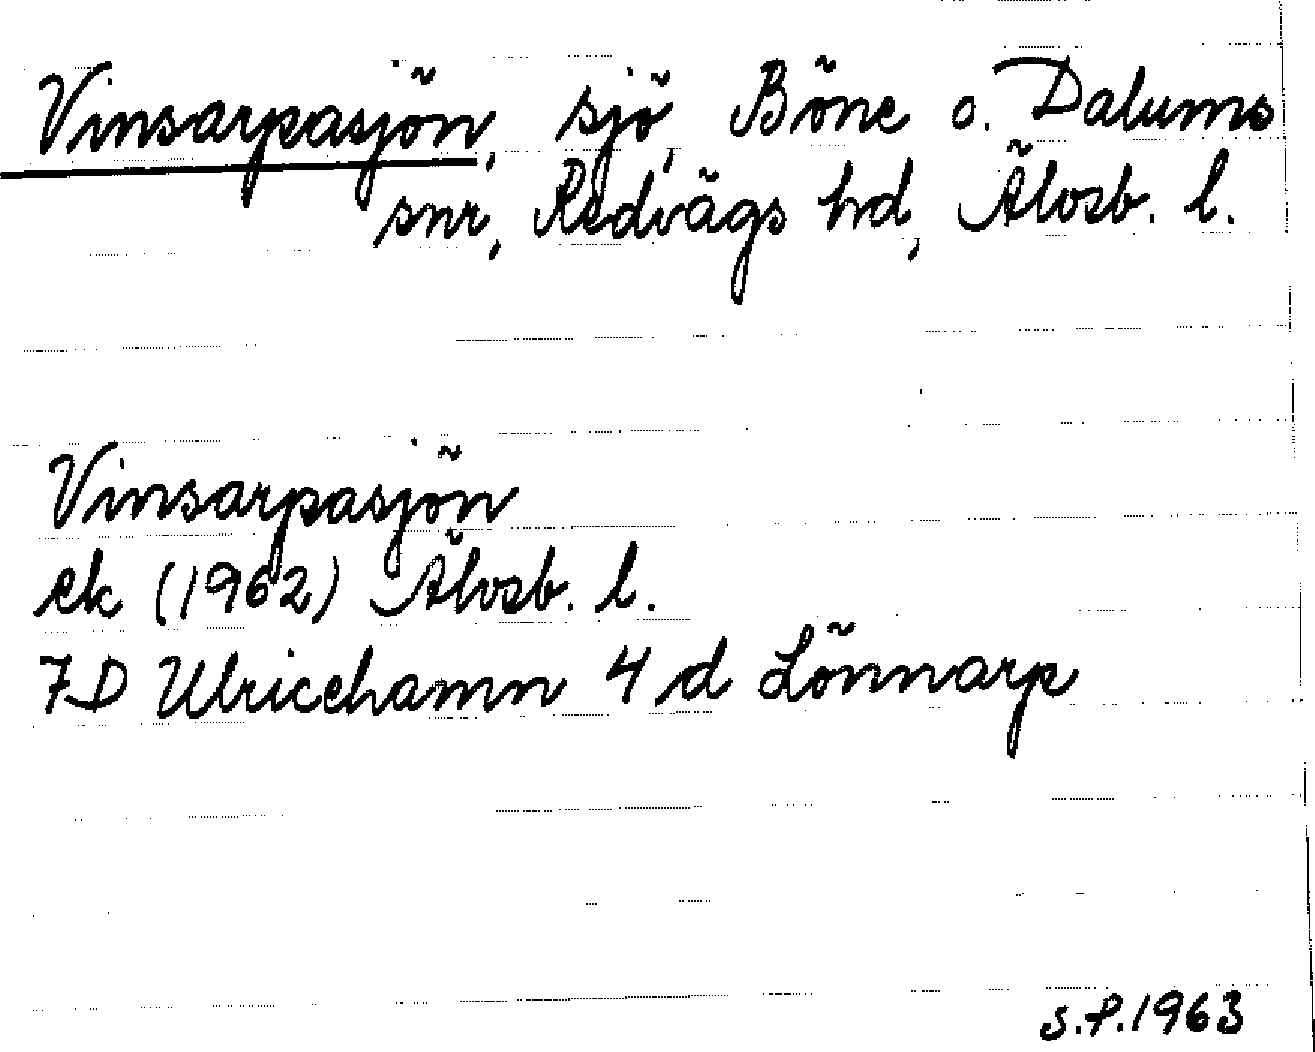 Vinsarpasjön, sjö, Böne o. Dalums
snr, Redvägs hd, Älvsb. l.
Vinsarpasjön
ek (1962) Älvsb. l.
7D Ulricehamn 4 d Lönnarp
S.P. 1963